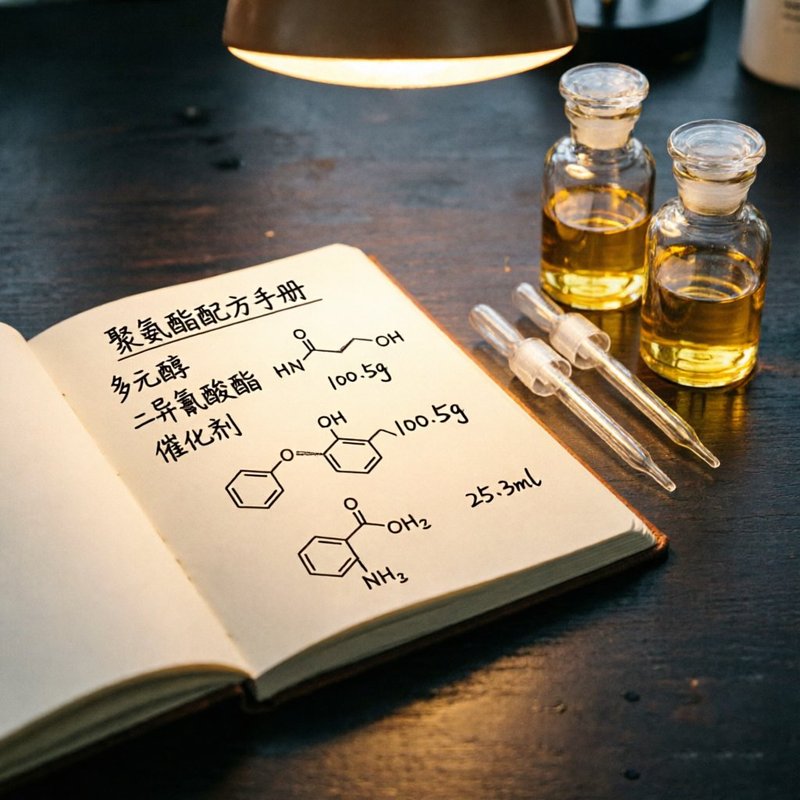 聚氨酯配方手册
多元醇
二异氰酸酯
催化剂
O
OH
HN
100.5g
OH
100.5g
O
O
OH2
25.3ml
NH3